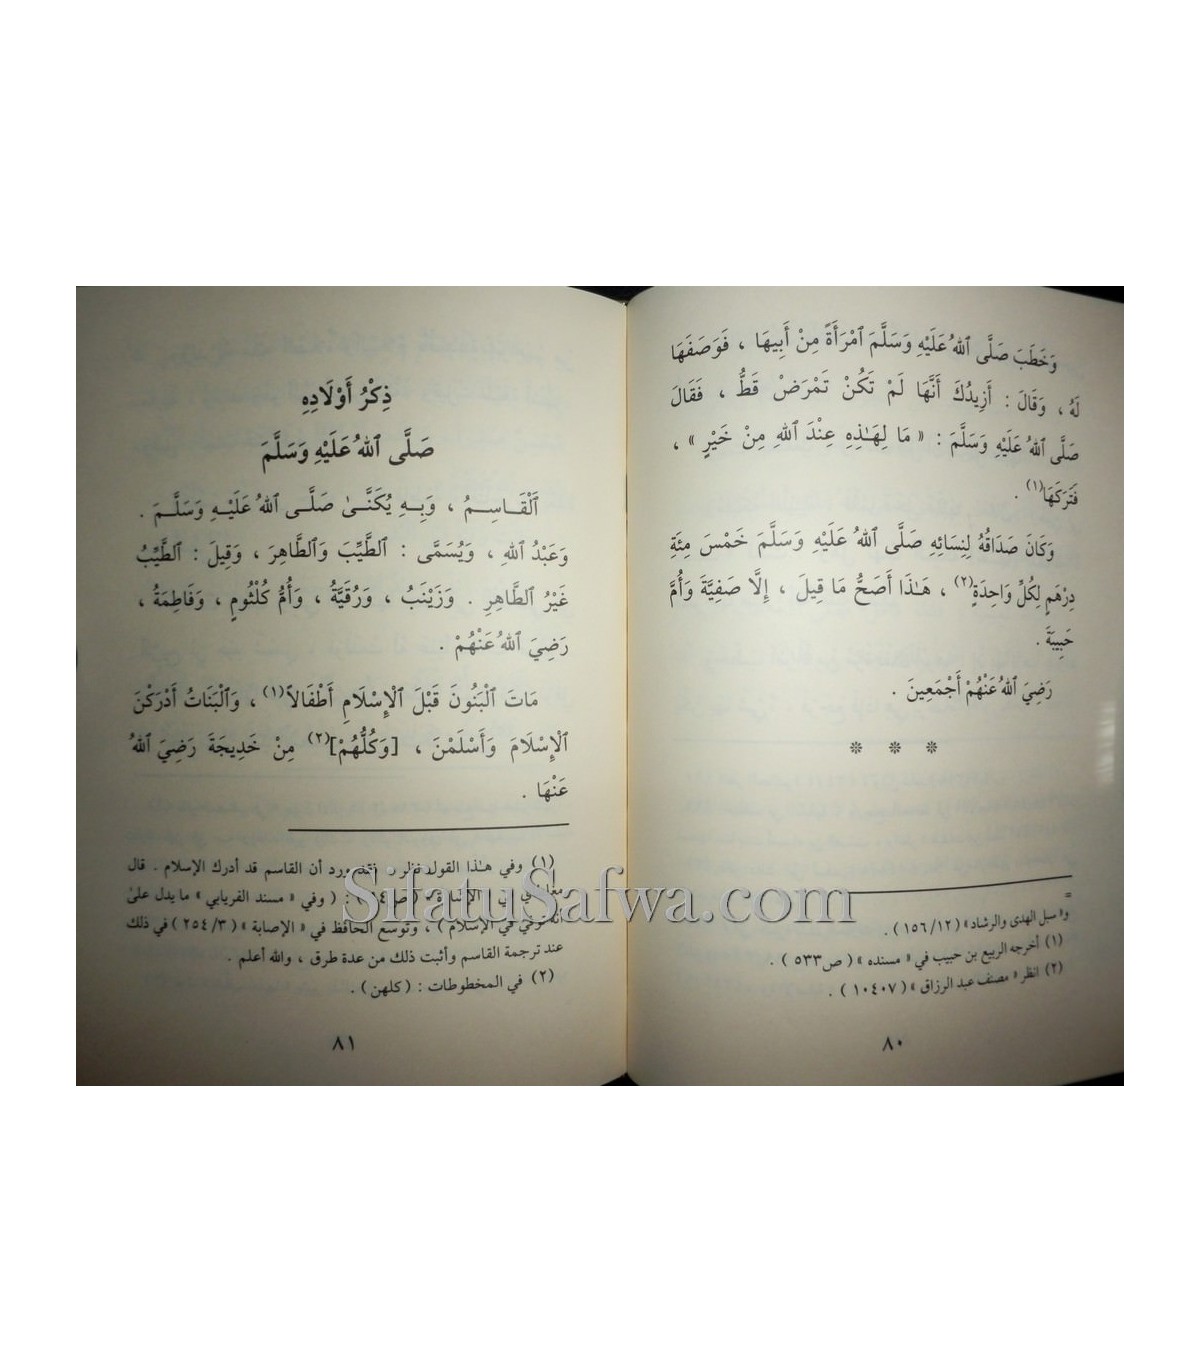 وَخَطَبَ صَلَّى ٱللهُ عَلَيْهِ وَسَلَّمَ ٱمْرَأَةً مِنْ أَبِيهَا ، فَوَصَفَهَا
لَهُ ، وَقَالَ : أَزِيدُكَ أَنَّهَا لَمْ تَكُنْ تَمْرَضْ قَطُّ ، فَقَالَ
صَلَّى ٱللهُ عَلَيْهِ وَسَلَّمَ : « مَا لِهَـٰذِهِ عِنْدَ ٱللهِ مِنْ خَيْرٍ » ،
فَتَرَكَهَا(١) .
وَكَانَ صَدَاقُهُ لِنِسَائِهِ صَلَّى ٱللهُ عَلَيْهِ وَسَلَّمَ خَمْسَ مِئَةِ
دِرْهَمٍ لِكُلِّ وَاحِدَةٍ(٢) ، هَـٰذَا أَصَحُّ مَا قِيلَ ، إِلَّا صَفِيَّةَ وَأُمَّ
حَبِيبَةَ .
رَضِيَ ٱللهُ عَنْهُمْ أَجْمَعِينَ .
* * *
=
و« سبل الهدى والرشاد » ( ١٥٦/١٢ ) .
(١) أخرجه الربيع بن حبيب في « مسنده » ( ص٥٣٣ ) .
(٢) انظر « مصنف عبد الرزاق » ( ١٠٤٠٧ ) .
٨٠
ذِكْرُ أَوْلَادِهِ
صَلَّى ٱللهُ عَلَيْهِ وَسَلَّمَ
ٱلْقَاسِمُ ، وَبِهِ يُكَنَّىٰ صَلَّى ٱللهُ عَلَيْهِ وَسَلَّمَ .
وَعَبْدُ ٱللهِ ، وَيُسَمَّى : ٱلطَّيِّبَ وَٱلطَّاهِرَ ، وَقِيلَ : ٱلطَّيِّبُ
غَيْرُ ٱلطَّاهِرِ . وَزَيْنَبُ ، وَرُقَيَّةُ ، وَأُمُّ كُلْثُومٍ ، وَفَاطِمَةُ ،
رَضِيَ ٱللهُ عَنْهُمْ .
مَاتَ ٱلْبَنُونَ قَبْلَ ٱلْإِسْلَامِ أَطْفَالاً(١) ، وَٱلْبَنَاتُ أَدْرَكْنَ
ٱلْإِسْلَامَ وَأَسْلَمْنَ ، [وَكُلُّهُمْ](٢) مِنْ خَدِيجَةَ رَضِيَ ٱللهُ
عَنْهَا .
(١) وفي هـٰذا القول نظر ؛ فقد ورد أن القاسم قد أدرك الإسلام . قال
في « الإشارة » : ( وفي « مسند الفريابي » ما يدل علىٰ
أنه توفي في الإسلام ) ، وتوسع الحافظ في « الإصابة » ( ٢٥٤/٣ ) في ذلك
عند ترجمة القاسم وأثبت ذلك من عدة طرق ، والله أعلم .
(٢) في المخطوطات : ( كلهن ) .
٨١
SilatuSafwa.com